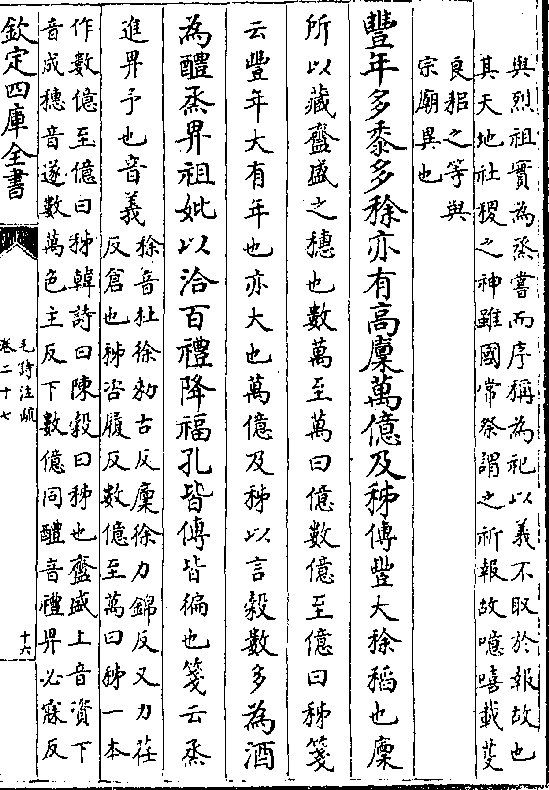 與烈祖實為烝嘗而序稱為祀以義不取於報故也
其天地社稷之神雖國常祭謂之祈報故噫嘻載芟
良耜之等與
宗廟異也
豐年多黍多稌亦有高廩萬億及秭傳豐大稌稻也廩
所以藏齍盛之穗也數萬至萬曰億數億至億曰秭箋
云豐年大有年也亦大也萬億及秭以言穀數多為酒
為醴烝畀祖妣以洽百禮降福孔皆傳皆徧也箋云烝
進畀予也音義
稌音杜徐勑古反廩徐力錦反又力荏
反倉也秭咨履反數億至萬曰秭一本
作數億至億曰秭韓詩曰陳穀曰秭也齍盛上音資下
音成穗音遂數萬色主反下數億同醴音禮畀必寐反
欽定四庫全書
毛詩注疏
卷二十七
十六